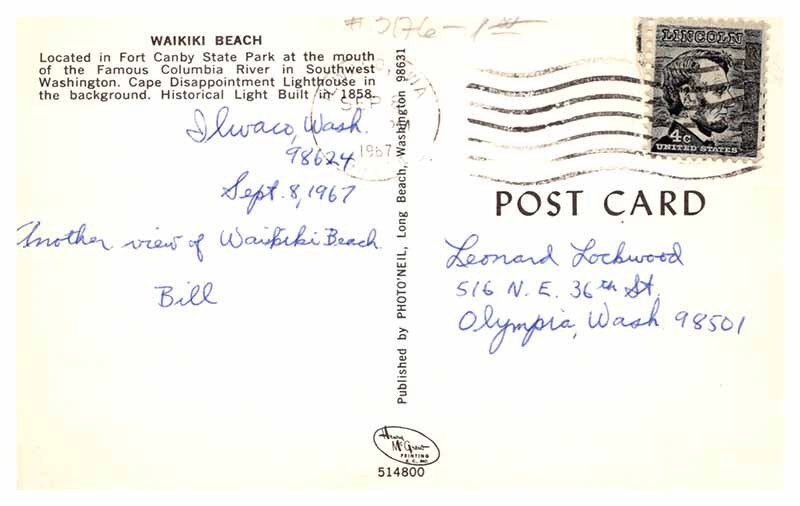 # 3176 - 1st
WAIKIKI BEACH
Located in Fort Canby State Park at the mouth
of the Famous Columbia River in Southwest
Washington. Cape Disappointment Lighthouse in
the background. Historical Light Built in 1858.
Ilwaco, Wash.
98624
Sept. 8, 1967
Another view of Waikiki Beach
Bill
SEP
1967
LINCOLN
4c
UNITED STATES
POST CARD
Leonard Lockwood
516 N. E. 36th St.
Olympia, Wash 98501
Published by PHOTO'NEIL, Long Beach, Washington 98631
Henry
McGrew
PRINTING
K. C. MO.
514800